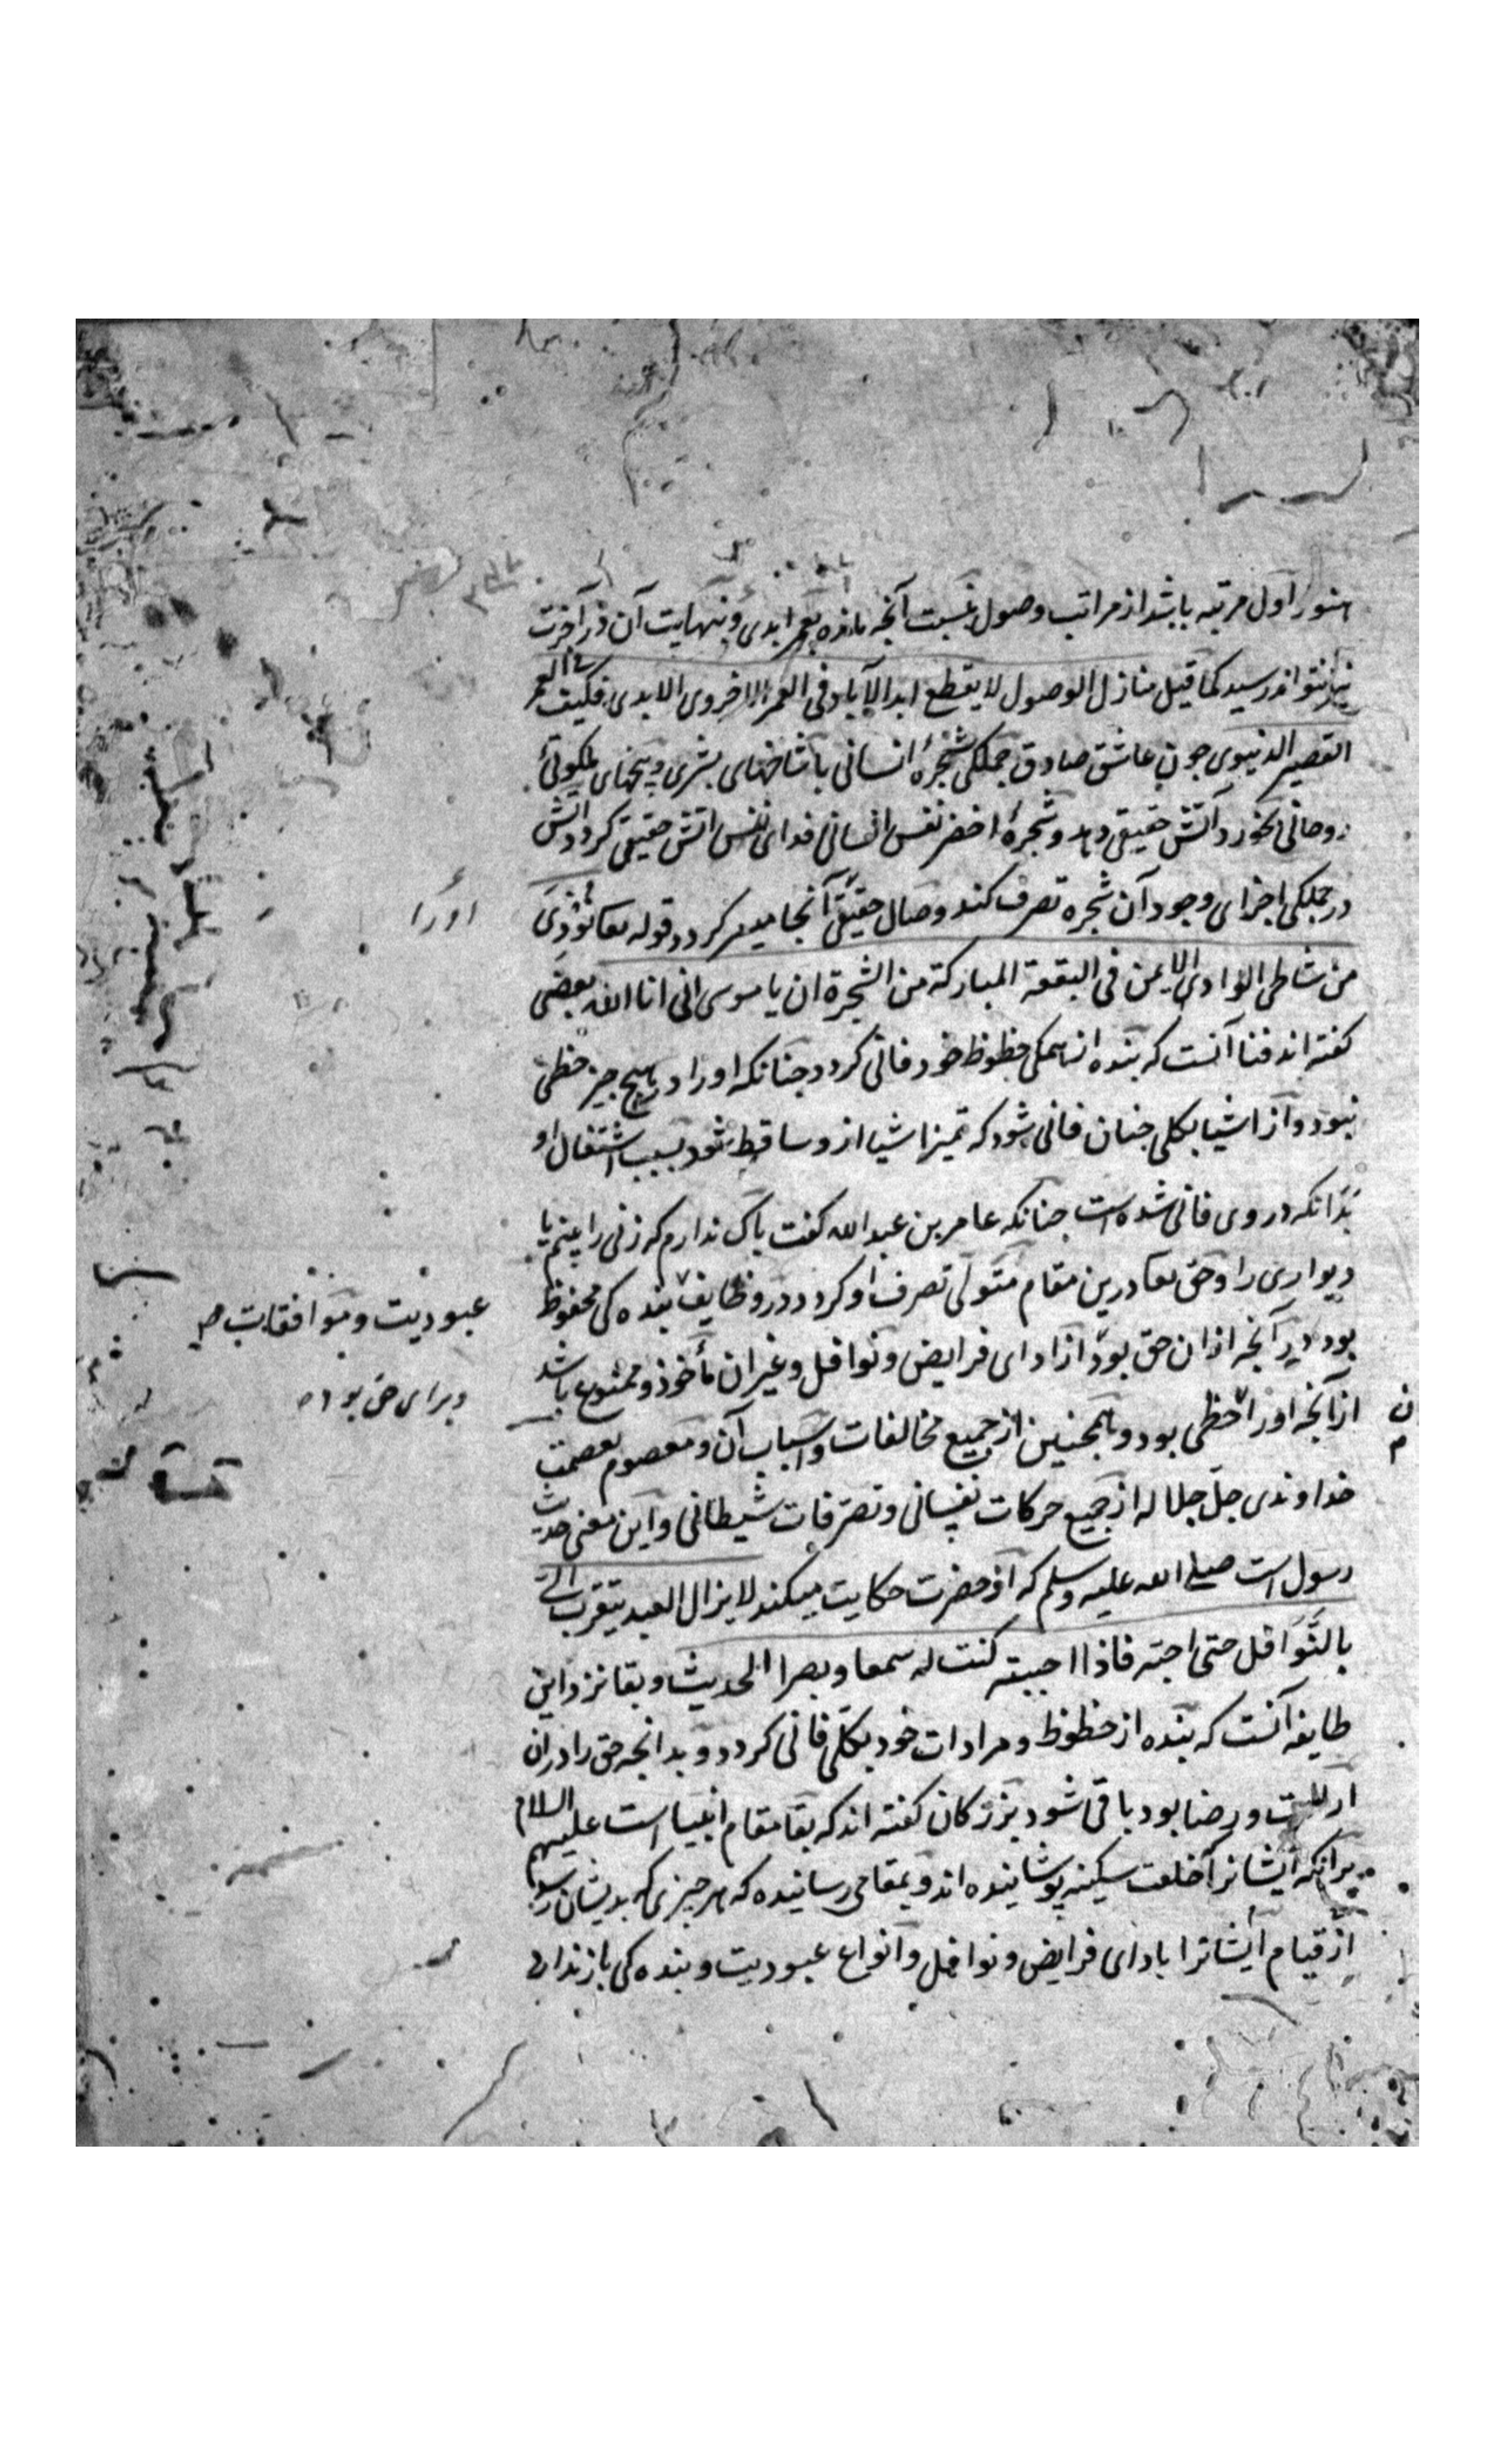 هنوز اول مرتبه باشد از مراتب وصول نسبت آنجه مانده بعمر ابدی و نهایت آن در آخرت
نیز نتواند رسید کما قیل منازل الوصول لا یقطع ابد الآباد فی العمر الاخروی الابدی فکیف فی العمر
القصیر الدنیوی جون عاشق صادق جملکی شجرهٔ انسانی با شاخهای بشری و بیخهای ملکوتی
روحانی بخورد آتش حقیقی دهد و شجرهٔ اخضر نفس انسانی فدای نفس اتش حقیقی کردد اتش
در جملکی اجزای وجود آن شجره تصرف کند وصال حقیقی آنجا میسر کردد قوله تعا نودی
اورا
من شاطی الوادی الایمن فی البقعة المبارکة من الشجرة ان یا موسی انی انا الله بعضی
کفته اند فنا آنست که بنده از همکی حظوظ خود فانی کردد جنانکه او را در هیج جیز حظی
نبود و از اشیا بکلی جنان فانی شود که تمیز اشیا ازو ساقط شود بسبب اشتغال او
بدانکه در وی فانی شده است جنانکه عامر بن عبد الله کفت باک ندارم که زنی را بینم یا
دیواری را و حق تعا درین مقام متولی تصرف او کردد در وظایف بنده کی محفوظ
عبودیت و موافقات
بود در آنجه از ان حق بود از ادای فرایض و نوافل و غیر ان مأخوذ و ممنوع باشد
وبرای حق بود
از آنجه او را حظی بود و همجنین از جمیع مخالفات و اسباب آن و معصوم بعصمت
خداوندی جل جلاله از جمیع حرکات نفسانی و تصرفات شیطانی و این معنی حدیث
رسول است صلی الله علیه وسلم که از حضرت حکایت میکند لا یزال العبد یتقرب الی
بالنوافل حتی احبه فاذا احببته کنت له سمعا و بصرا الحدیث و بقا نزد این
طایفه آنست که بنده از حظوظ و مرادات خود بکلی فانی کردد و بدانجه حق را در ان
ارادت و رضا بود باقی شود بزرکان کفته اند که بقا مقام انبیا است علیهم السلام
برانکه ایشانرا خلعت سکینه پوشانیده اند و بمقامی رسانیده که هر جیزی که بدیشان رسد
از قیام ایشانرا بادای فرایض و نوافل و انواع عبودیت و بنده کی باز ندارد